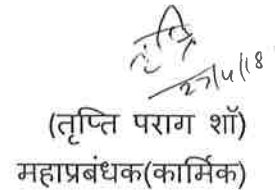 तृप्ति
27/4/18
(तृप्ति पराग शॉ)
महाप्रबंधक(कार्मिक)